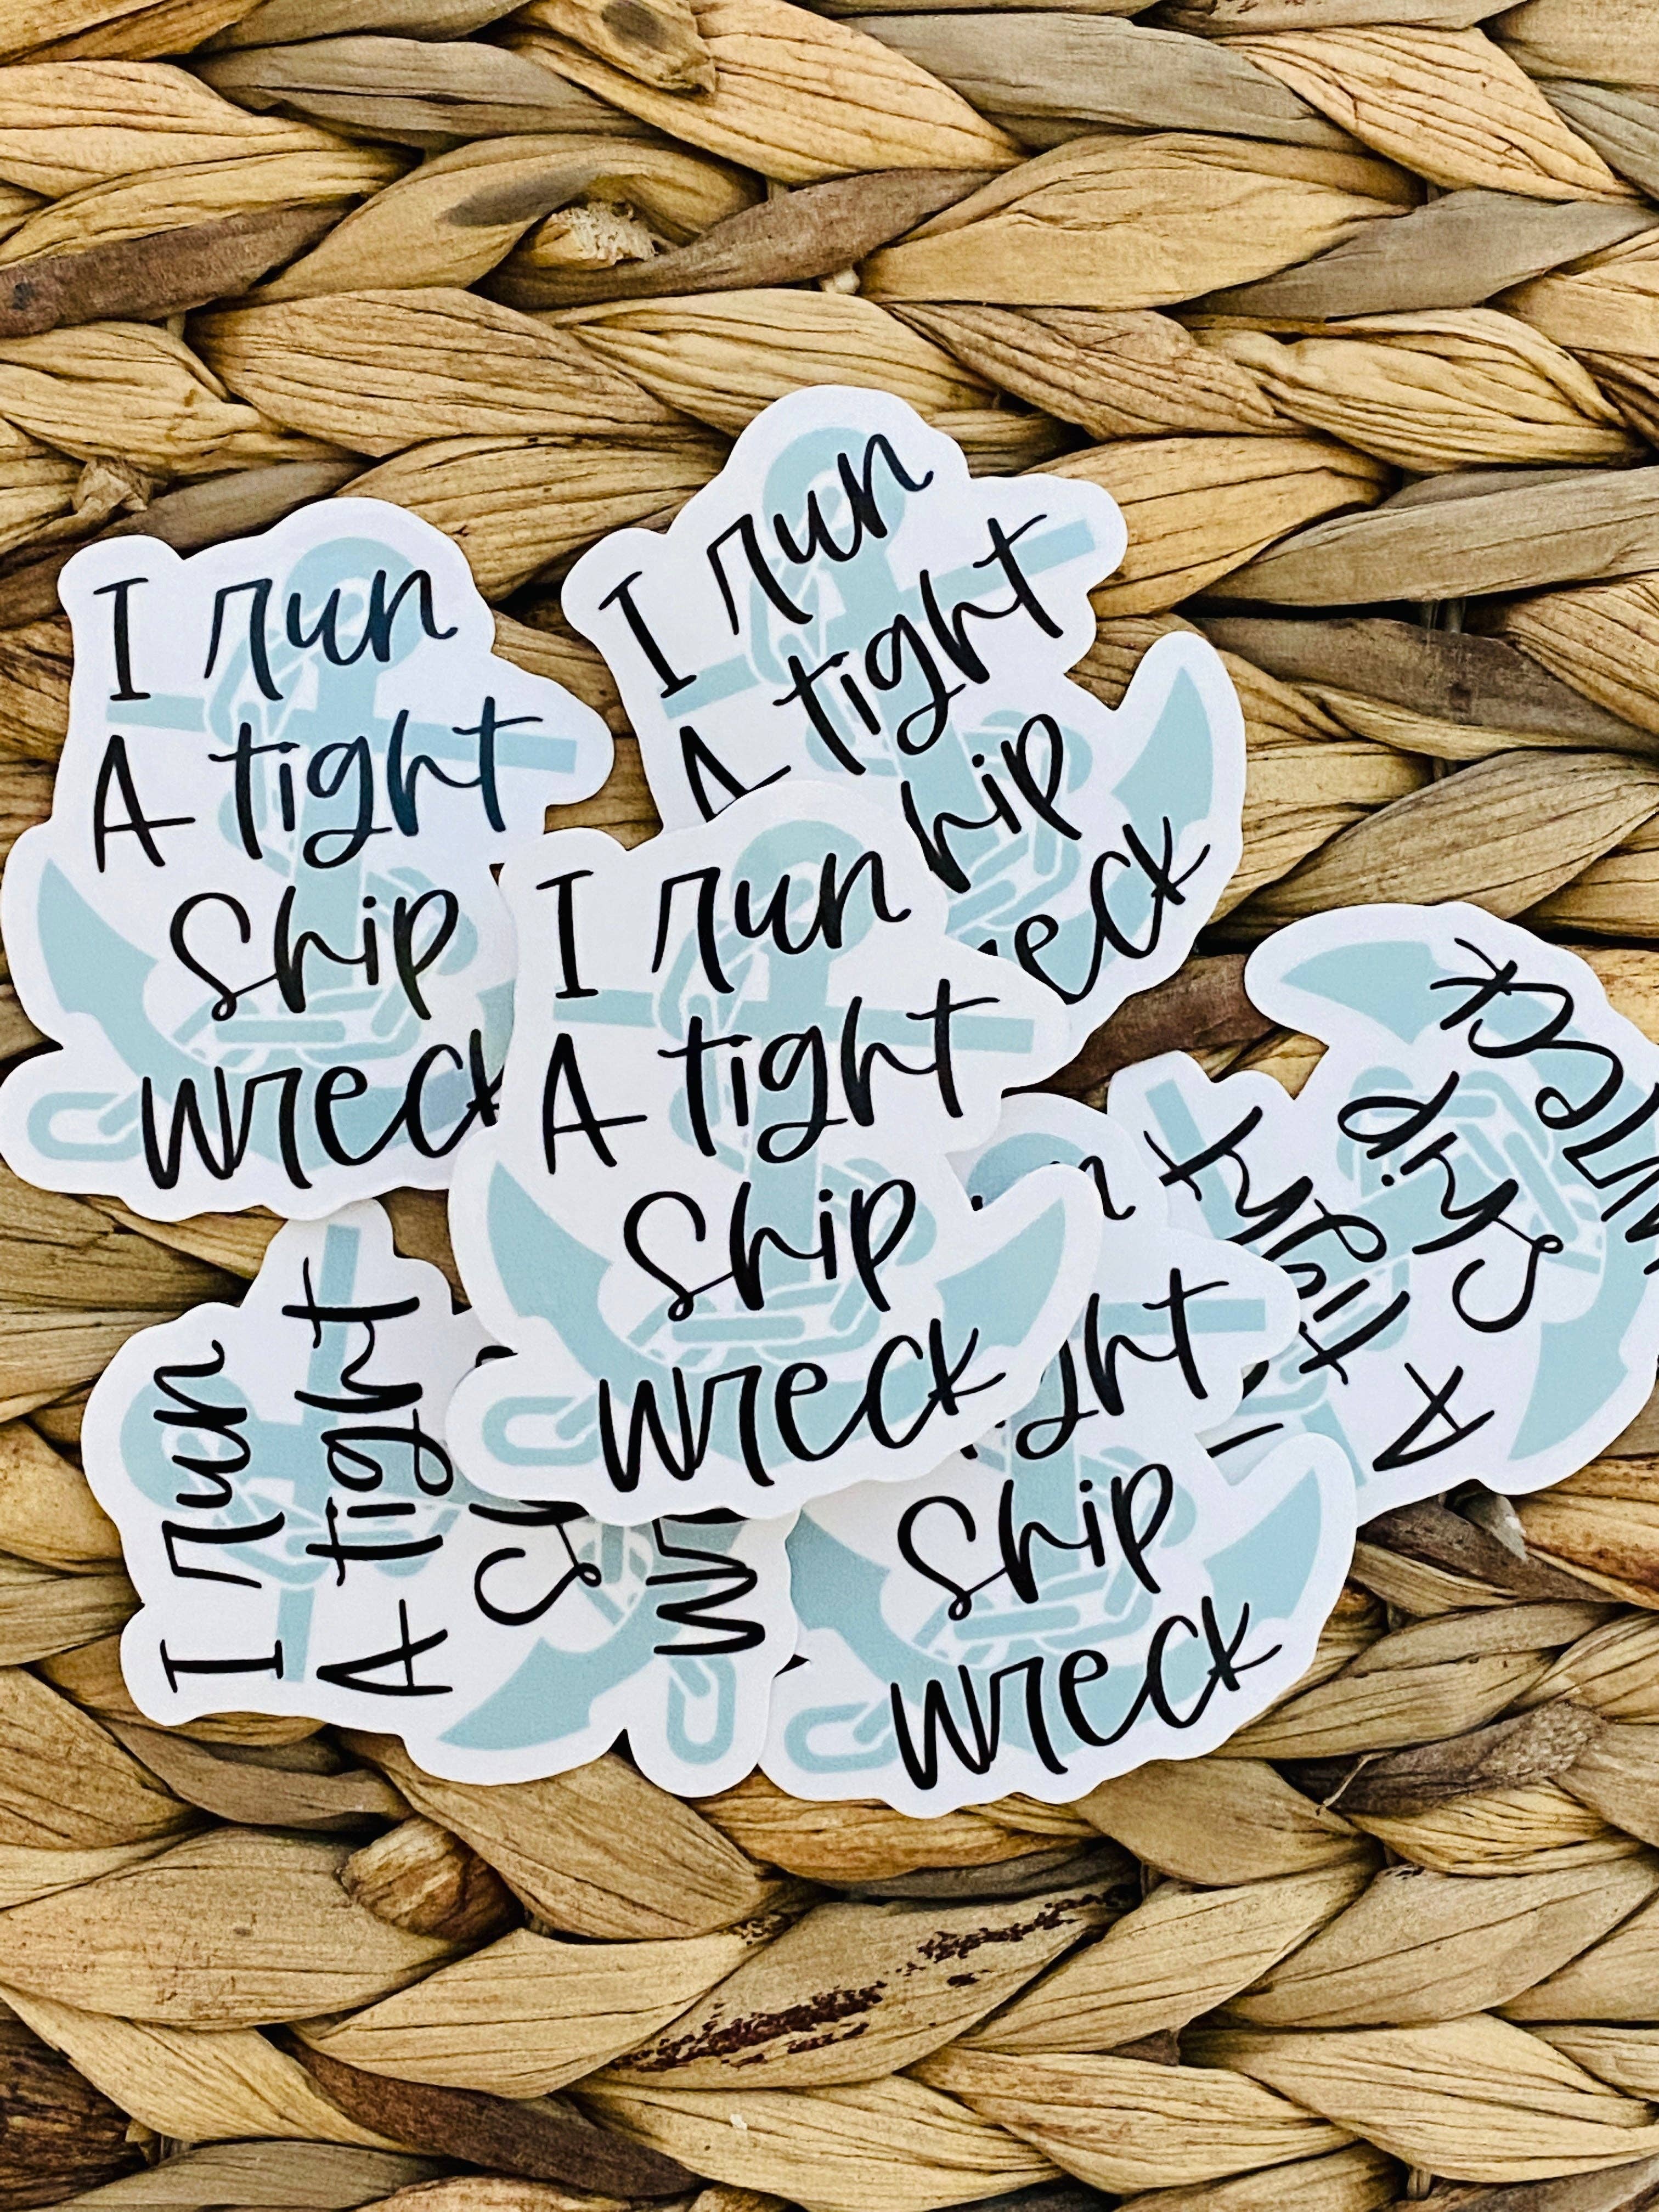 I run
A tight
ship
wreck
I run
A tight
hip
eck
I run
A tight
ship
wreck
wreck
ship
tight
A
I run
A tight
ght
ship
wreck